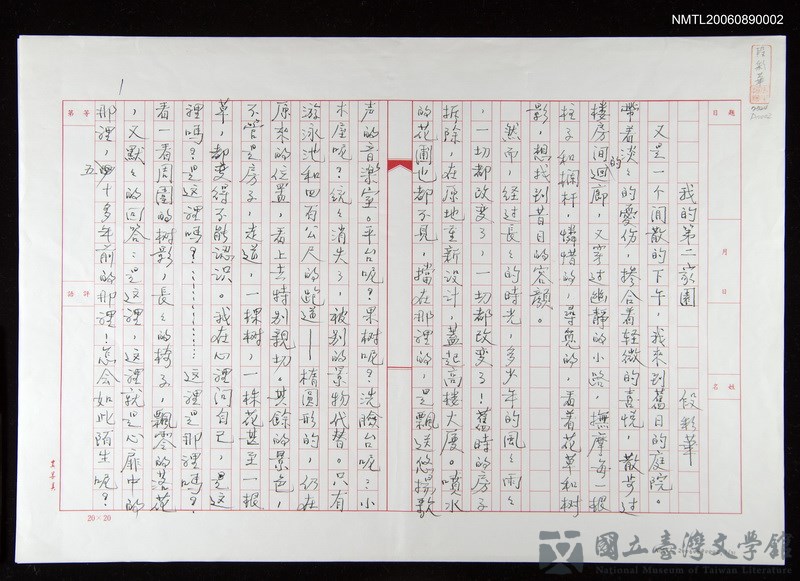 NMTL20060890002
段彩華
題目
月　日
姓名
我的第二家園
段彩華
又是一个閒散的下午，我來到舊日的庭院。
帶着淡淡的憂伤，摻合着轻微的喜悅，散步过
楼房间的迴廊，又穿过幽静的小路，撫摩每一根
柱子和攔杆，憐惜的，尋覓的，看着花草和树
影，想找到昔日的容顏。
然而，经过長長的時光，多少年的風風雨雨
，一切都改变了，一切都改变了！舊時的房子
拆除，在原地重新设计，蓋起高楼大厦。喷水
的花圃也都不見，擋在那裡的，是飄送悠揚歌
声的音樂室。平台呢？果树呢？洗臉台呢？小
木屋呢？統統消失了，被别的景物代替。只有
游泳池和四百公尺的跑道——楕圆形的，仍在
原來的位置，看上去特别親切。其餘的景色，
不管是房子，走道，一棵树，一株花甚至一根
草，都变得不能認识。我在心裡问自己，是这
裡嗎？是这裡嗎？…………这裡是那裡嗎？
看一看周圍的树影，長長的椅子，飄零的落花
，又默默的回答：是这裡，这裡就是心扉中的
那裡，五十多年前的那裡！怎会如此陌生呢？
等第
評語
1
20×20
國立臺灣文學館
National Museum of Taiwan Literature